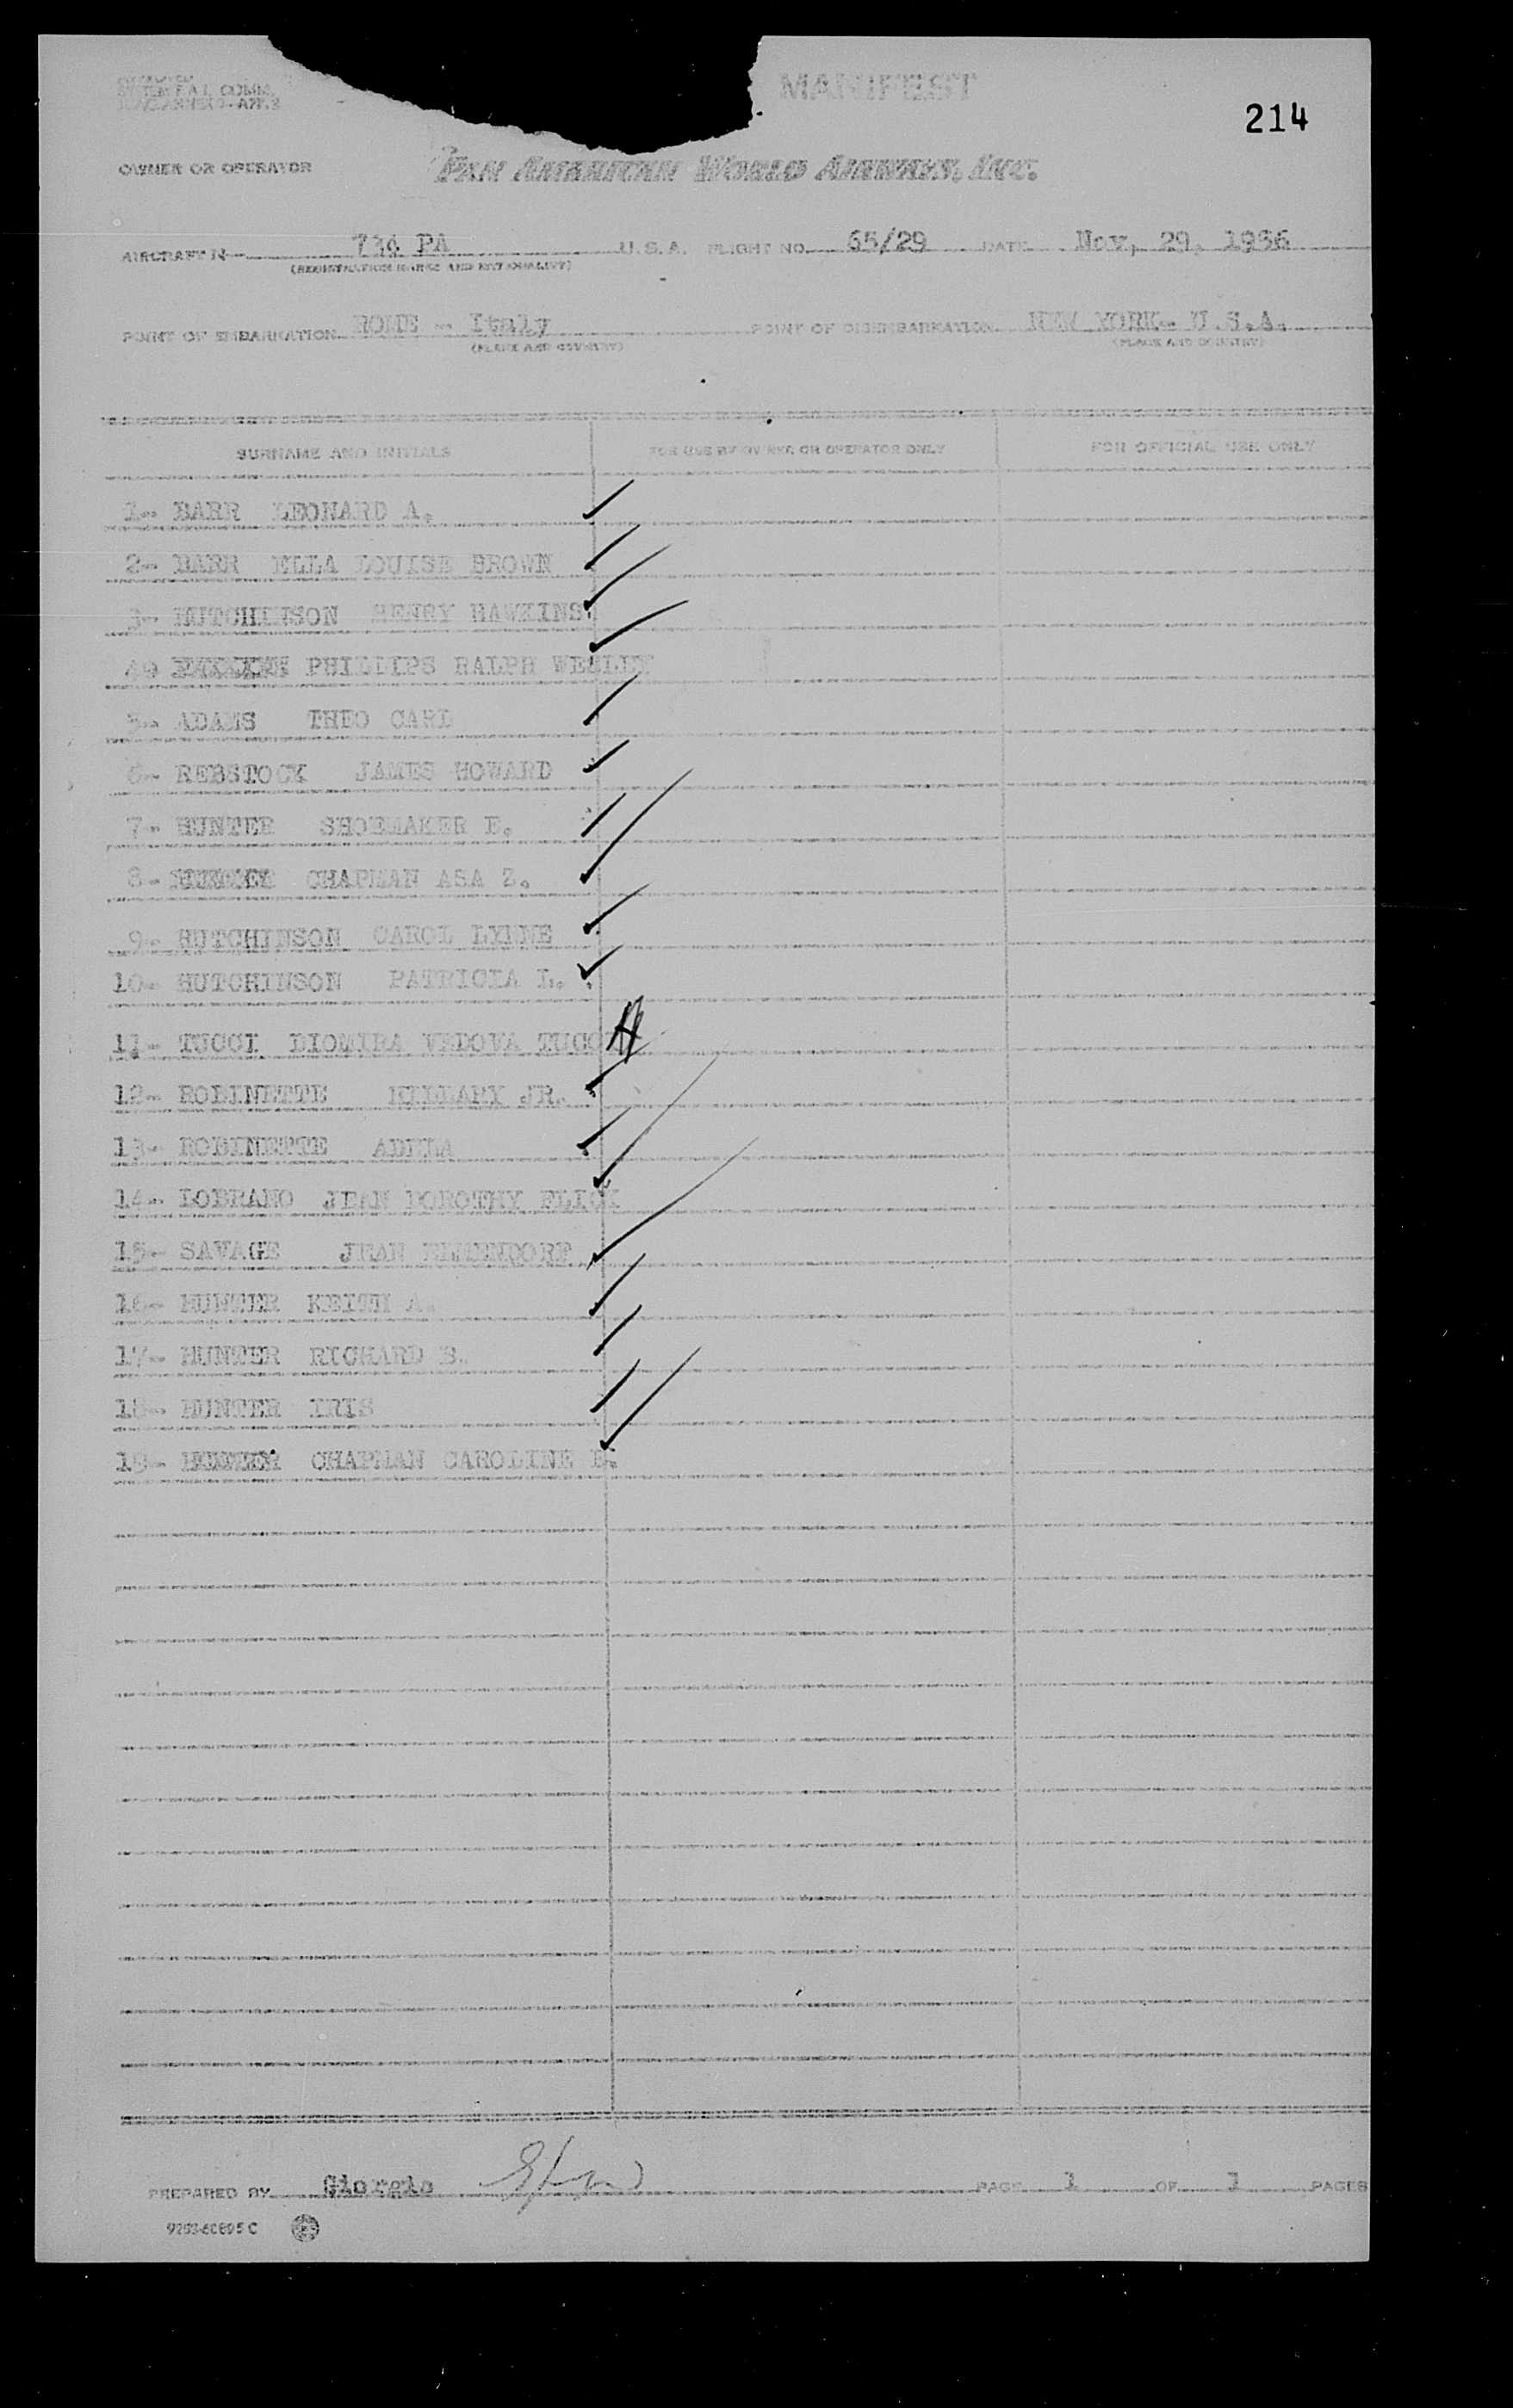 MANIFEST
214
OWNER OR OPERATOR PAN AMERICAN WORLD AIRWAYS, INC.
AIRCRAFT N 734 PA U.S.A. FLIGHT NO. 65/29 DATE Nov, 29, 1956
(REGISTRATION MARKS AND NATIONALITY)
POINT OF EMBARKATION ROME - Italy POINT OF DISEMBARKATION NEW YORK- U.S.A.
(PLACE AND COUNTRY) (PLACE AND COUNTRY)
SURNAME AND INITIALS FOR USE BY OWNER OR OPERATOR ONLY FOR OFFICIAL USE ONLY
1- BARR LEONARD A.
2- BARR ELLA LOUISE BROWN
3- HUTCHINSON HENRY HAWKINS
49 PHILLIPS RALPH WESLEY
5- ADAMS THEO CARL
6- REBSTOCK JAMES HOWARD
7- HUNTER SHOEMAKER E.
8- CHAPMAN ASA Z.
9- HUTCHINSON CAROL LYNNE
10- HUTCHINSON PATRICIA L.
11- TUCCI DIOMIRA VEDOVA TUCCI
12- ROBINETTE HILLARY JR.
13- ROBINETTE ADELA
14- LOBRANO JEAN DOROTHY FLICK
15- SAVAGE JEAN ELMENDORF
16- HUNTER KEITH A.
17- HUNTER RICHARD S.
18- HUNTER IRIS
19- CHAPMAN CAROLINE E.
PREPARED BY Giorgio PAGE 1 OF 1 PAGES